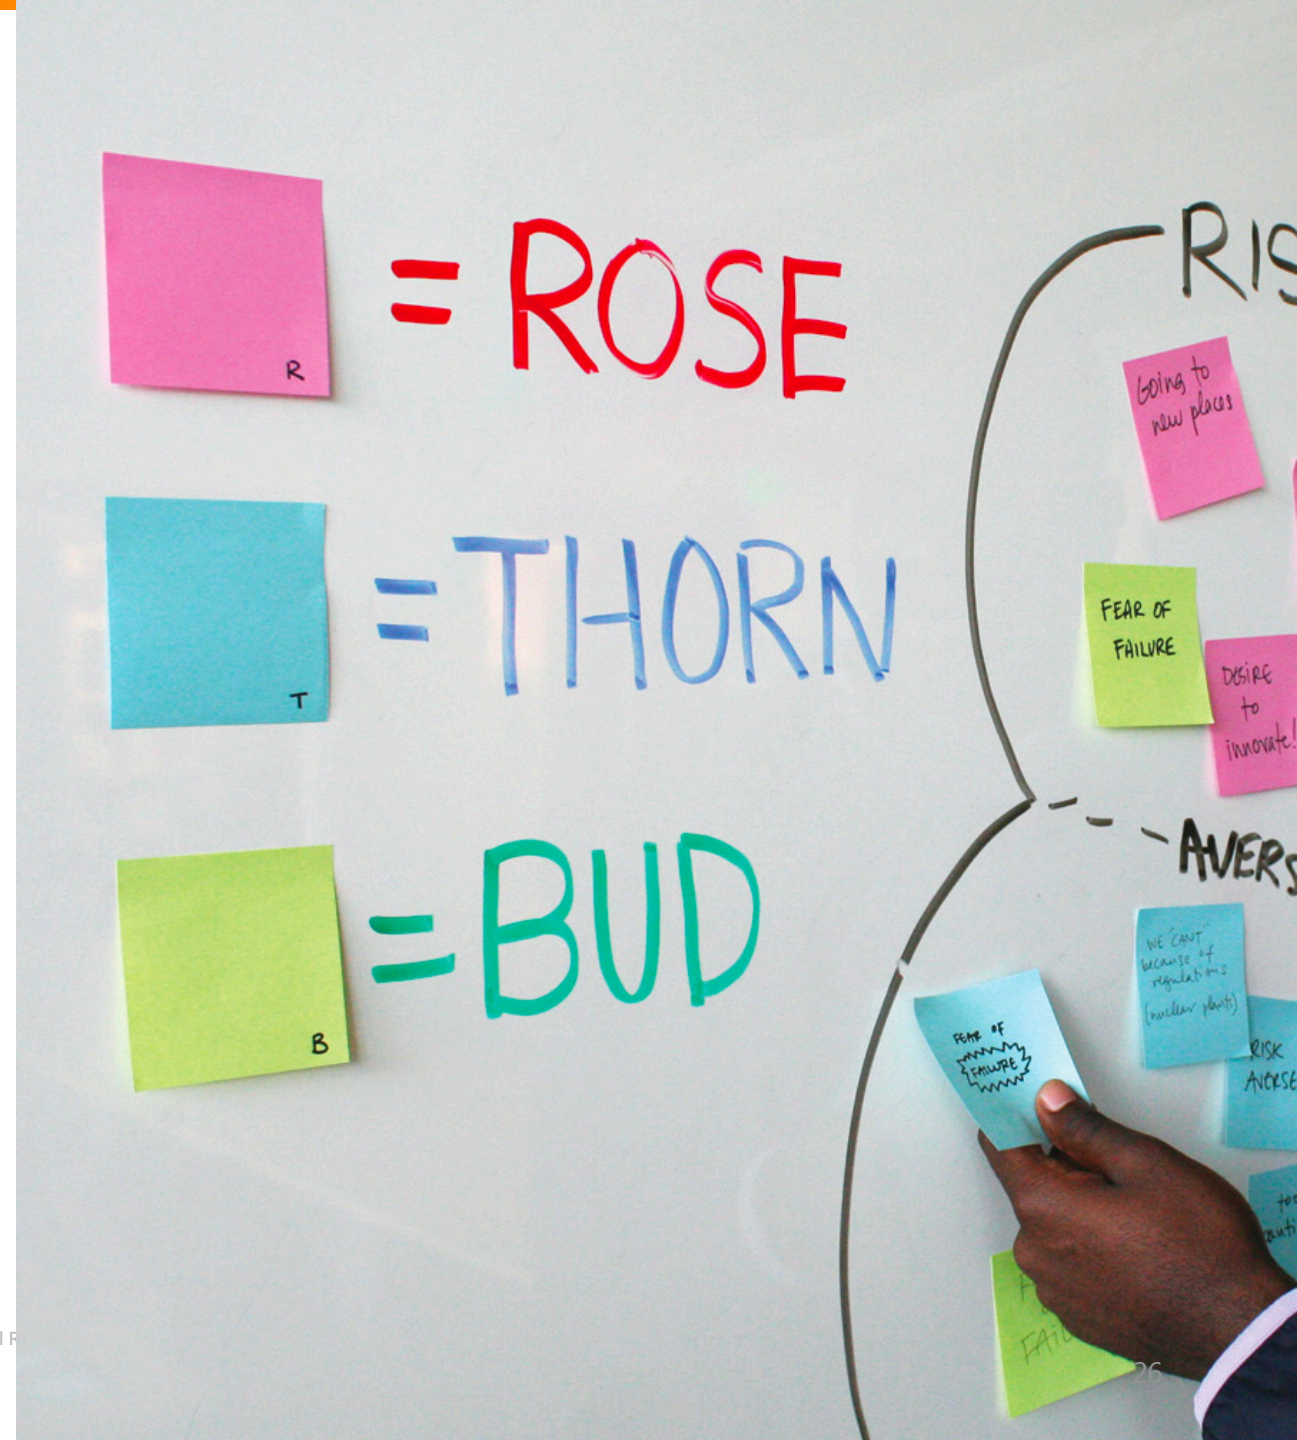 R
= ROSE
T
= THORN
B
= BUD
RIS
Going to
new places
FEAR OF
FAILURE
DESIRE
to
innovate!
AVERS
WE "CANT"
because of
regulations
(nuclear plants)
RISK
AVERSE
FEAR OF
FAILURE
too
F
FAIL
IR
26